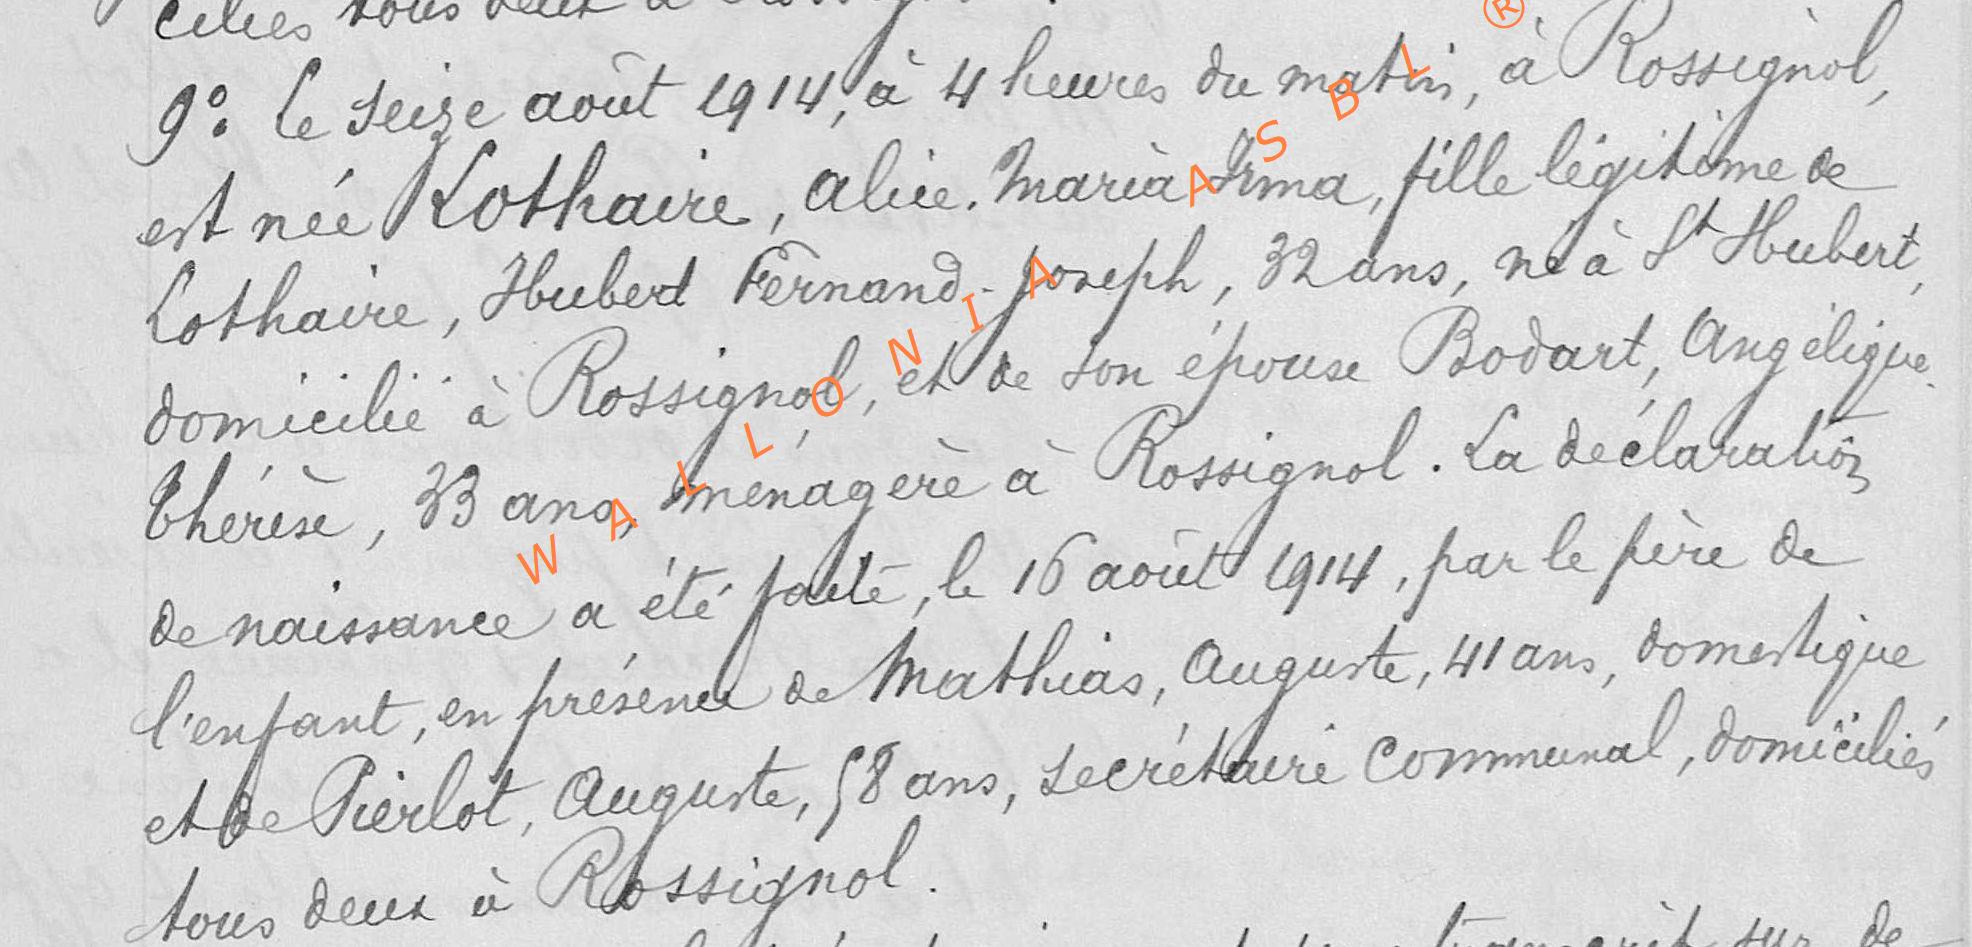 ciliés tous deux à Rossignol.
9°. Le seize août 1914, à 4 heures du matin, à Rossignol,
est née Lothaire, Alice. Maria Irma, fille légitime de
Lothaire, Hubert Fernand-Joseph, 32 ans, né à St Hubert,
domicilié à Rossignol, et de son épouse Bodart, Angélique.
Thérèse, 33 ans, ménagère à Rossignol. La déclaration
de naissance a été faite, le 16 août 1914, par le père de
l'enfant, en présence de Mathias, Auguste, 41 ans, domestique
et de Pierlot, Auguste, 58 ans, secrétaire communal, domiciliés
tous deux à Rossignol.
transcrit sur de
WALLONIA ASBL ®